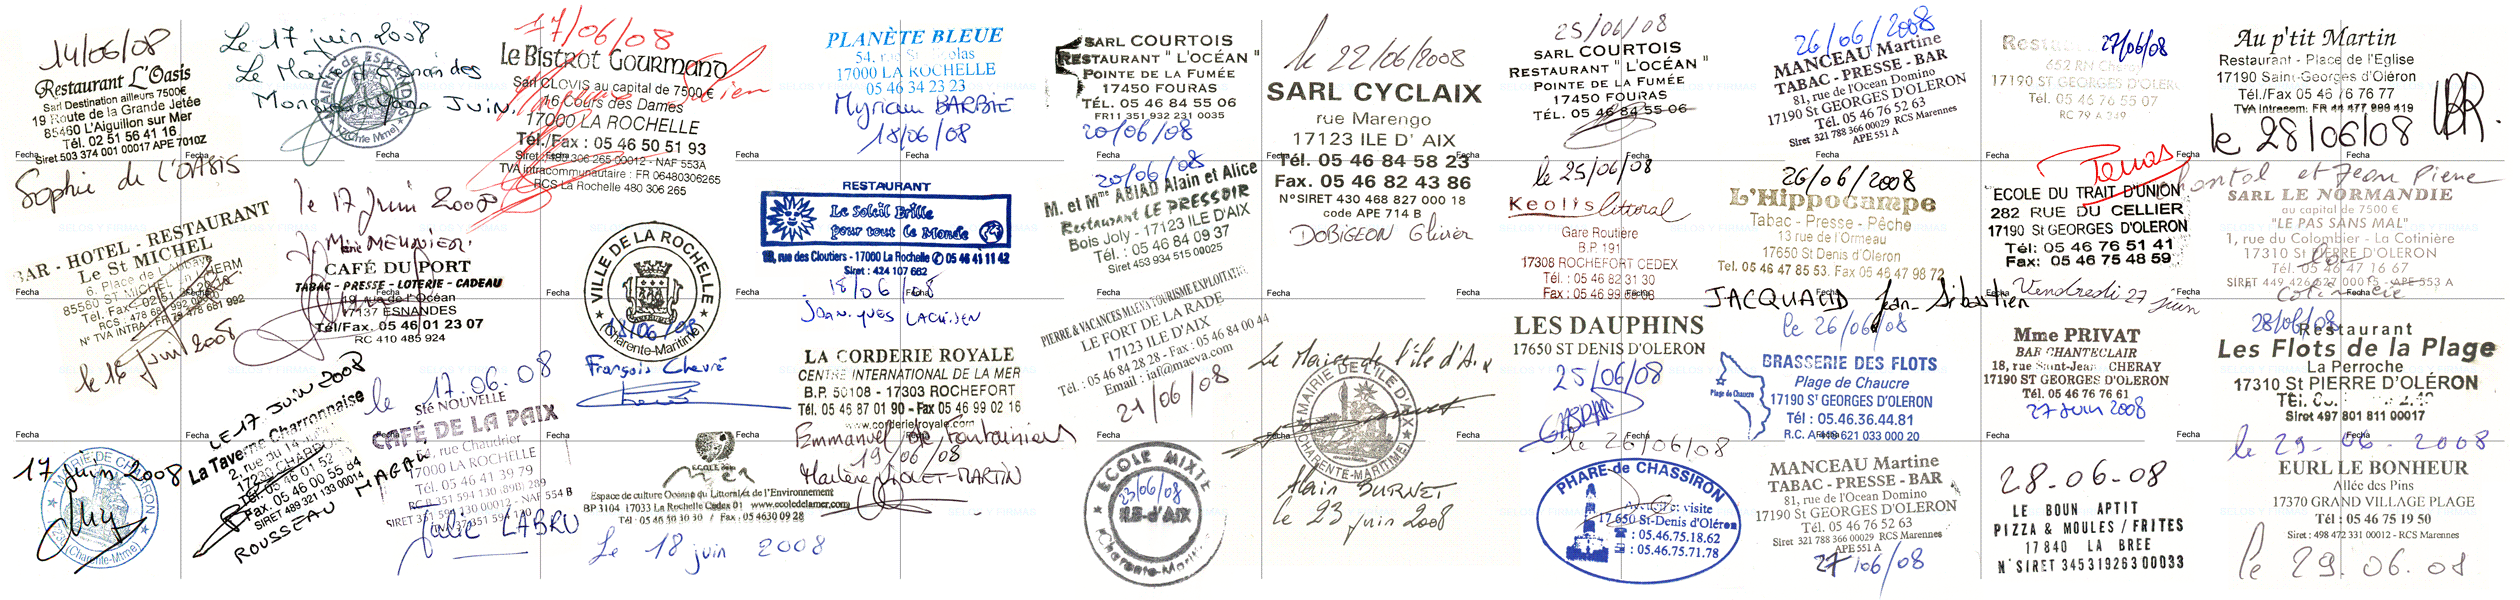 14/06/08
Restaurant L'Oasis
Sarl Destination ailleurs 7500€
19 Route de la Grande Jetée
85460 L'Aiguillon sur Mer
Tél. 02 51 56 41 16
Siret 503 374 001 00017 APE 7010Z
Fecha
Sophie de l'OASIS
BAR - HOTEL - RESTAURANT
Le St MICHEL
6, Place de L'Abbaye
85580 ST MICHEL EN L'HERM
Fecha
le 16 juin 2008
Fecha
17 juin 2008
MAIRIE DE CHARRON
(Charente-Mtme)
Le 17 juin 2008
Le Maire d'Esnandes
Monsieur Yann Juin.
MAIRIE de ESNANDES
Fecha
le 17 Juin 2008
Mme MEUNIER
CAFÉ DU PORT
TABAC - PRESSE - LOTERIE - CADEAU
19 rue de l'Océan
17137 ESNANDES
Tél/Fax. 05 46 01 23 07
RC 410 485 924
Fecha
LE 17 JUIN 2008
La Taverne Charronnaise
2, rue du 14
17230 CHARRON
Tél. 05 46 01 52
Fax. 05 46 00 55 84
SIRET 489 321 133 00014
MAGALI
ROUSSEAU
17/06/08
Le Bistrot Gourmand
Sarl CLOVIS au capital de 7500 €
16 Cours des Dames
17000 LA ROCHELLE
Tél./Fax : 05 46 50 51 93
Siret : 480 306 265 00012 - NAF 553A
TVA intracommunautaire : FR 06480306265
RCS La Rochelle 480 306 265
Fecha
Fecha
le 17.06.08
Sté NOUVELLE
CAFÉ DE LA PAIX
rue Chaudrier
17000 LA ROCHELLE
Tél. 05 46 41 39 79
Julie LABRU
VILLE DE LA ROCHELLE
18/06/08
(Charente-Maritime)
François Chevré
Fecha
ECOLE DE LA MER
Espace de culture Océane du Littoral et de l'Environnement
BP 3104 17033 La Rochelle Cedex 01 www.ecoledelamer.com
Le 18 juin 2008
PLANÈTE BLEUE
54, rue St Nicolas
17000 LA ROCHELLE
05 46 34 23 23
Myriam BARBIE
18/06/08
Fecha
RESTAURANT
Le Soleil Brille
pour tout le Monde
rue des Cloutiers - 17000 La Rochelle ✆ 05 46 41 11 42
Siret : 424 107 662
18/06/08
Fecha
LA CORDERIE ROYALE
CENTRE INTERNATIONAL DE LA MER
B.P. 50108 - 17303 ROCHEFORT
Tél. 05 46 87 01 90 - Fax 05 46 99 02 16
www.corderieroyale.com
19/06/08
Fecha
SARL COURTOIS
RESTAURANT " L'OCÉAN "
POINTE DE LA FUMÉE
17450 FOURAS
TÉL. 05 46 84 55 06
FR11 351 932 231 0035
20/06/08
Fecha
20/06/08
M. et Mme ABIAD Alain et Alice
Restaurant LE PRESSOIR
Bois Joly - 17123 ILE D'AIX
Tél. : 05 46 84 09 37
Siret 453 934 515 00025
Fecha
PIERRE & VACANCES MAEVA TOURISME EXPLOITATION
LE FORT DE LA RADE
17123 ILE D'AIX
Tél. : 05 46 84 28 28 - Fax : 05 46 84 00 44
Email : iaf@maeva.com
21/06/08
Fecha
ECOLE MIXTE
23/06/08
ILE-d'AIX
(Charente-Maritime)
le 22/06/2008
SARL CYCLAIX
rue Marengo
17123 ILE D' AIX
Tél. 05 46 84 58 23
Fax. 05 46 82 43 86
N°SIRET 430 468 827 000 18
code APE 714 B
DOBIGEON Olivier
Fecha
Le Maire de l'île d'Aix
MAIRIE DE L'ILE D'AIX
(CHARENTE-MARITIME)
Alain BURNET
le 23 juin 2008
25/06/08
SARL COURTOIS
RESTAURANT " L'OCÉAN "
POINTE DE LA FUMÉE
17450 FOURAS
TÉL. 05 46 84 55 06
Fecha
le 25/06/08
Keolis littoral
Gare Routière
B.P. 191
17308 ROCHEFORT CEDEX
Tél. : 05 46 82 31 30
Fecha
LES DAUPHINS
17650 ST DENIS D'OLERON
25/06/08
Fecha
le 26/06/08
PHARE de CHASSIRON
Accueil et visite
17 650 St-Denis d'Oléron
☎ : 05.46.75.18.62
: 05.46.75.71.78
26/06/2008
MANCEAU Martine
TABAC - PRESSE - BAR
81, rue de l'Ocean Domino
17190 St GEORGES D'OLERON
Tél. 05 46 76 52 63
Siret 321 788 366 00029 RCS Marennes
APE 551 A
Fecha
26/06/2008
L'Hippocampe
Tabac - Presse - Pêche
13 rue de l'Ormeau
17650 St Denis d'Oléron
Tel. 05 46 47 85 53. Fax 05 46 47 98 72
JACQUAUD Jean-Sébastien
le 26/06/08
BRASSERIE DES FLOTS
Plage de Chaucre
17190 St GEORGES D'OLERON
Tél : 05.46.36.44.81
R.C. A 449 621 033 000 20
Plage de Chaucre
MANCEAU Martine
TABAC - PRESSE - BAR
81, rue de l'Ocean Domino
17190 St GEORGES D'OLERON
Tél. 05 46 76 52 63
Siret 321 788 366 00029 RCS Marennes
APE 551 A
27/06/08
27/06/08
17190 ST GEORGES D'OLERON
Tél. 05 46 76 55 07
Fecha
ECOLE DU TRAIT D'UNION
282 RUE DU CELLIER
17190 St GEORGES D'OLERON
Tél: 05 46 76 51 41
Fax: 05 46 75 48 59
Vendredi 27 juin
Fecha
Mme PRIVAT
BAR CHANTECLAIR
18, rue Saint-Jean CHERAY
17190 ST GEORGES D'OLERON
Tél. 05 46 76 76 61
27 Juin 2008
Fecha
28-06-08
LE BOUN APTIT
PIZZA & MOULES / FRITES
17840 LA BREE
N°SIRET 34531926300033
Au p'tit Martin
Restaurant - Place de l'Eglise
17190 Saint-Georges d'Oléron
Tél./Fax 05 46 76 76 77
TVA Intracom: FR 44 477 998 419
le 28/06/08
Fecha
Chantal et Jean Pierre
SARL LE NORMANDIE
au capital de 7500 €
"LE PAS SANS MAL"
1, rue du Colombier - La Cotinière
17310 St PIERRE D'OLERON
Tél. 05 46 47 16 67
La Cotinière
Fecha
28/06/08
Restaurant
Les Flots de la Plage
La Perroche
17310 St PIERRE D'OLÉRON
Siret 497 801 811 00017
Fecha
le 29-06-2008
EURL LE BONHEUR
Allée des Pins
17370 GRAND VILLAGE PLAGE
Tél : 05 46 75 19 50
Siret : 498 472 331 00012 - RCS Marennes
le 29.06.08